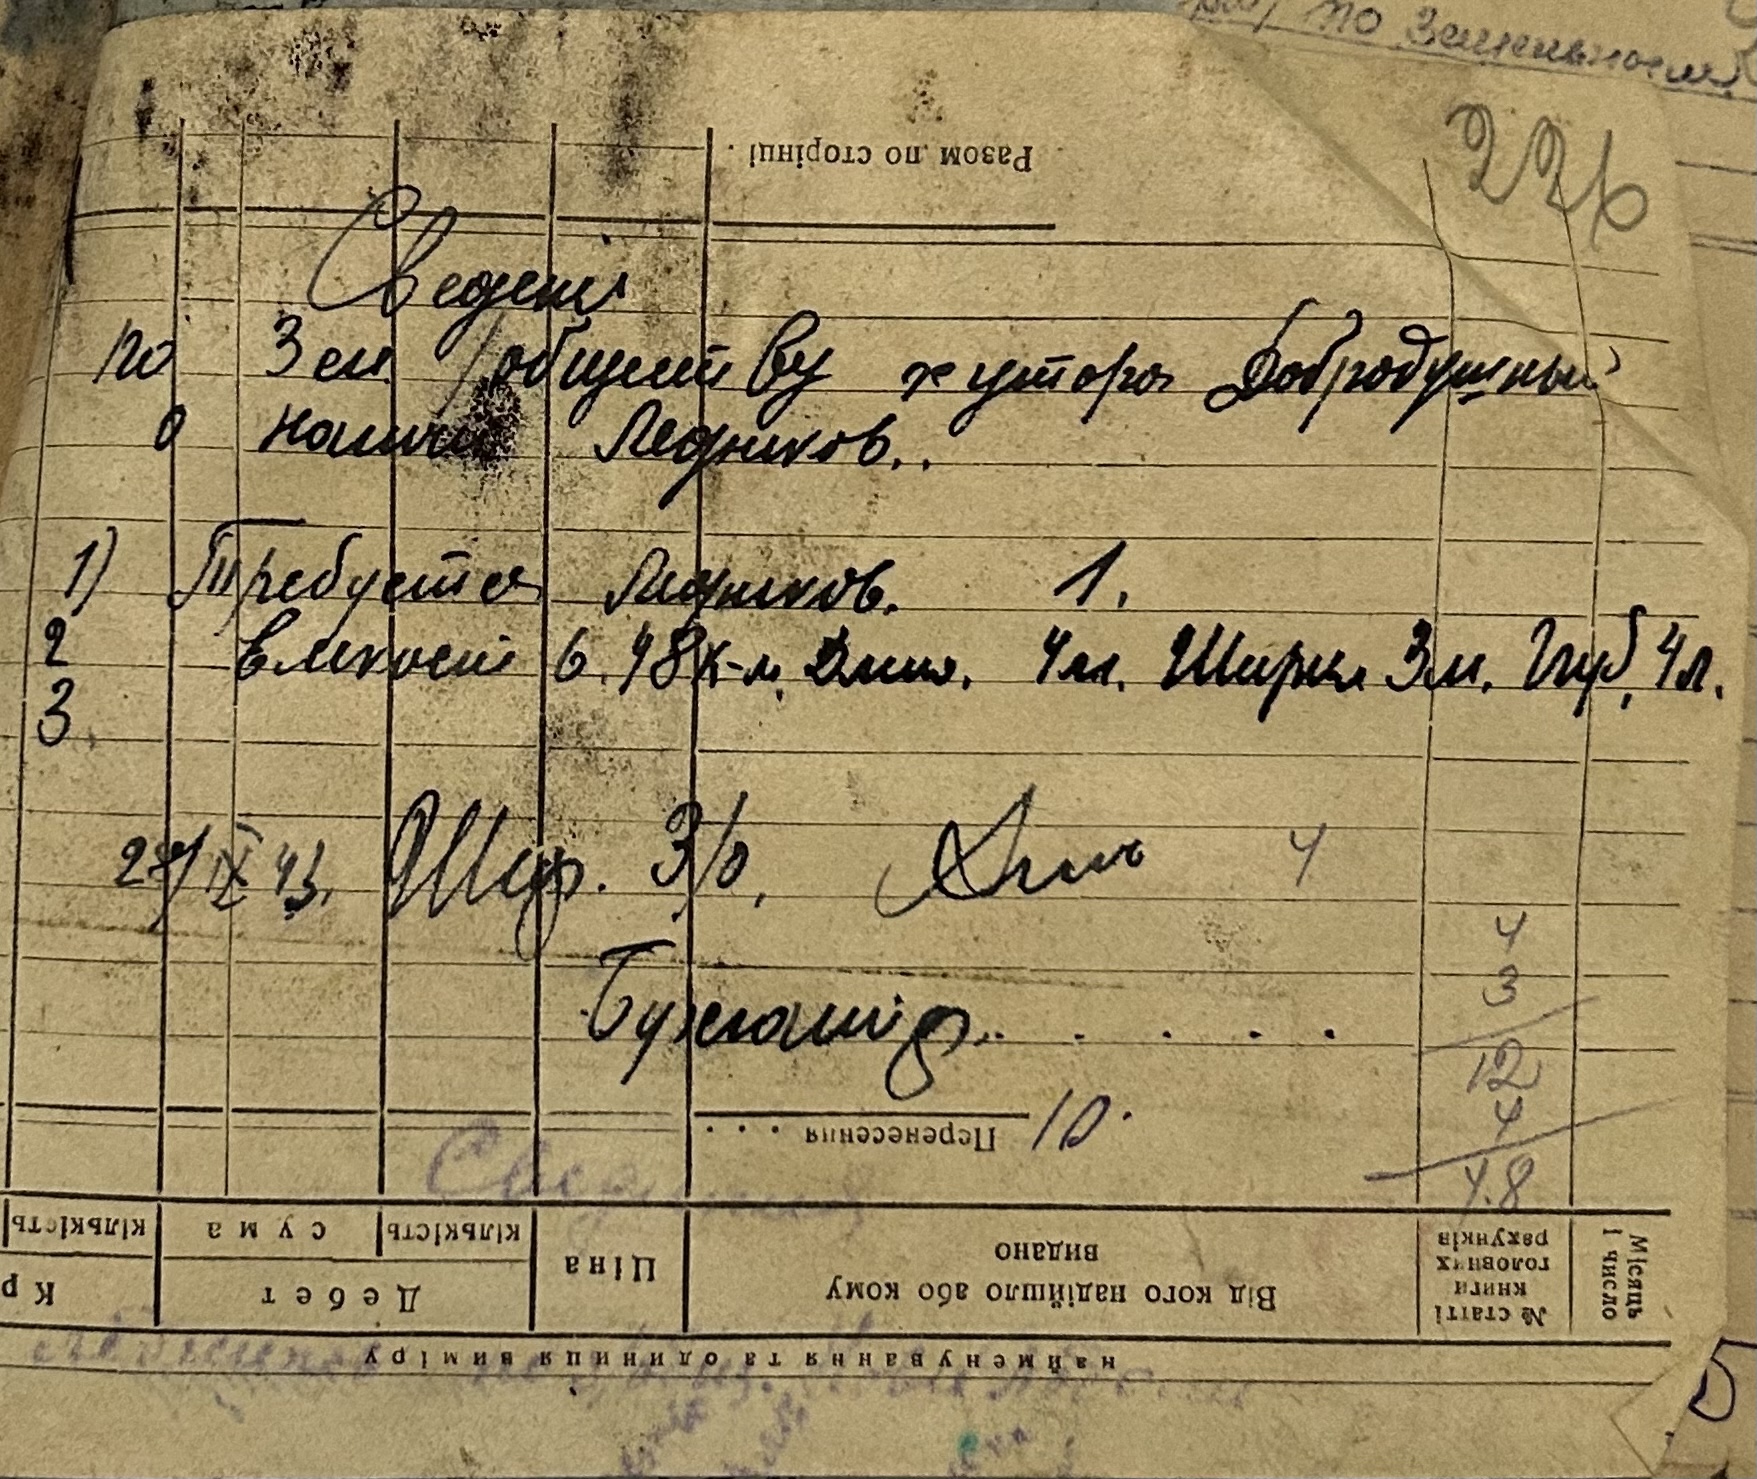 по Земельном
226
Разом по сторінці .
Сведени
по Зем / обществу хутора Добродушный
о нали Ледников..
1) Требуется Ледников. 1.
2 Емкост 6. 48 к-м. Длин. 4 м. Ширин 3 м. Глуб. 4 м.
3.
27/IX 43. Шир. 3/0, Длин 4
4
3
12
4
4.8
10.
Перенесення . . .
кількість
сума
кількість
Ціна
Від кого надійшло або кому видано
№ статті книги головних рахунків
Місяць і число
Кр
Дебет
найменування та одиниця виміру
5